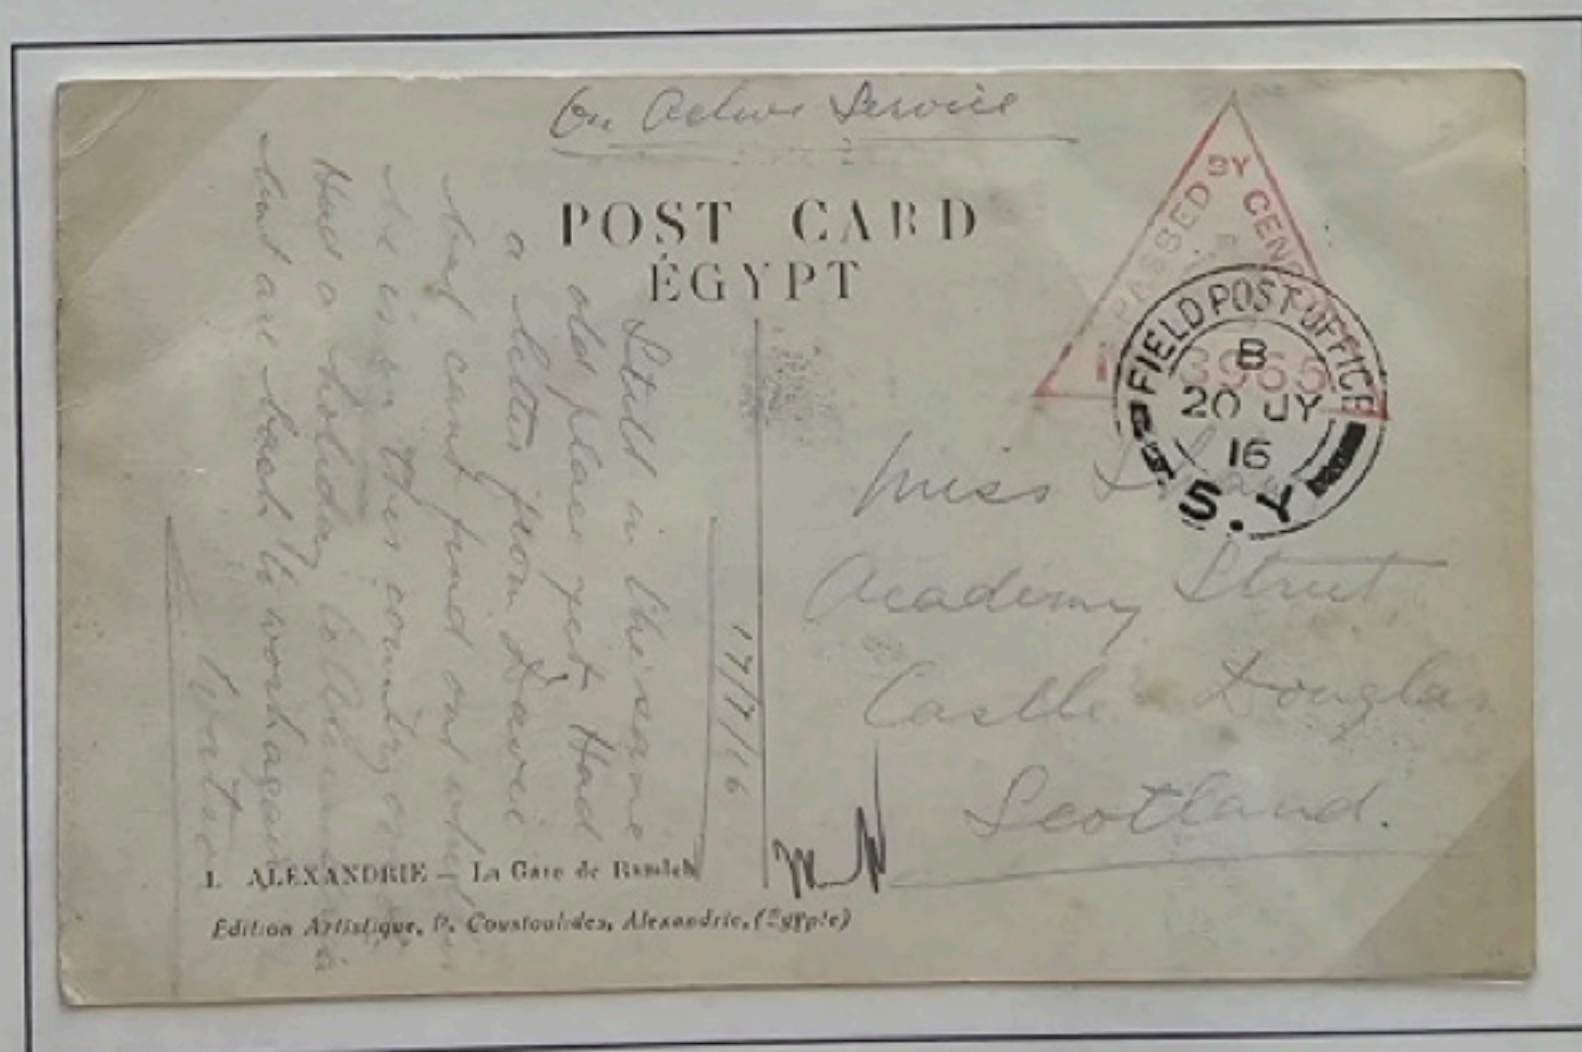 On Active Service
POST CARD
ÉGYPT
PASSED BY CENS
3955
FIELD POST OFFICE
B
20 JY
16
S.Y
Miss
Academy Street
Castle Douglas
Scotland.
17/7/16
Still in the same
old place yet Had
a letter from Davie
but cant find out where
he is in this country
Had a holiday to
but are back to work again
1. ALEXANDRIE — La Gare de Ramleh
Edition Artistique, Alexandrie, (Égypte)